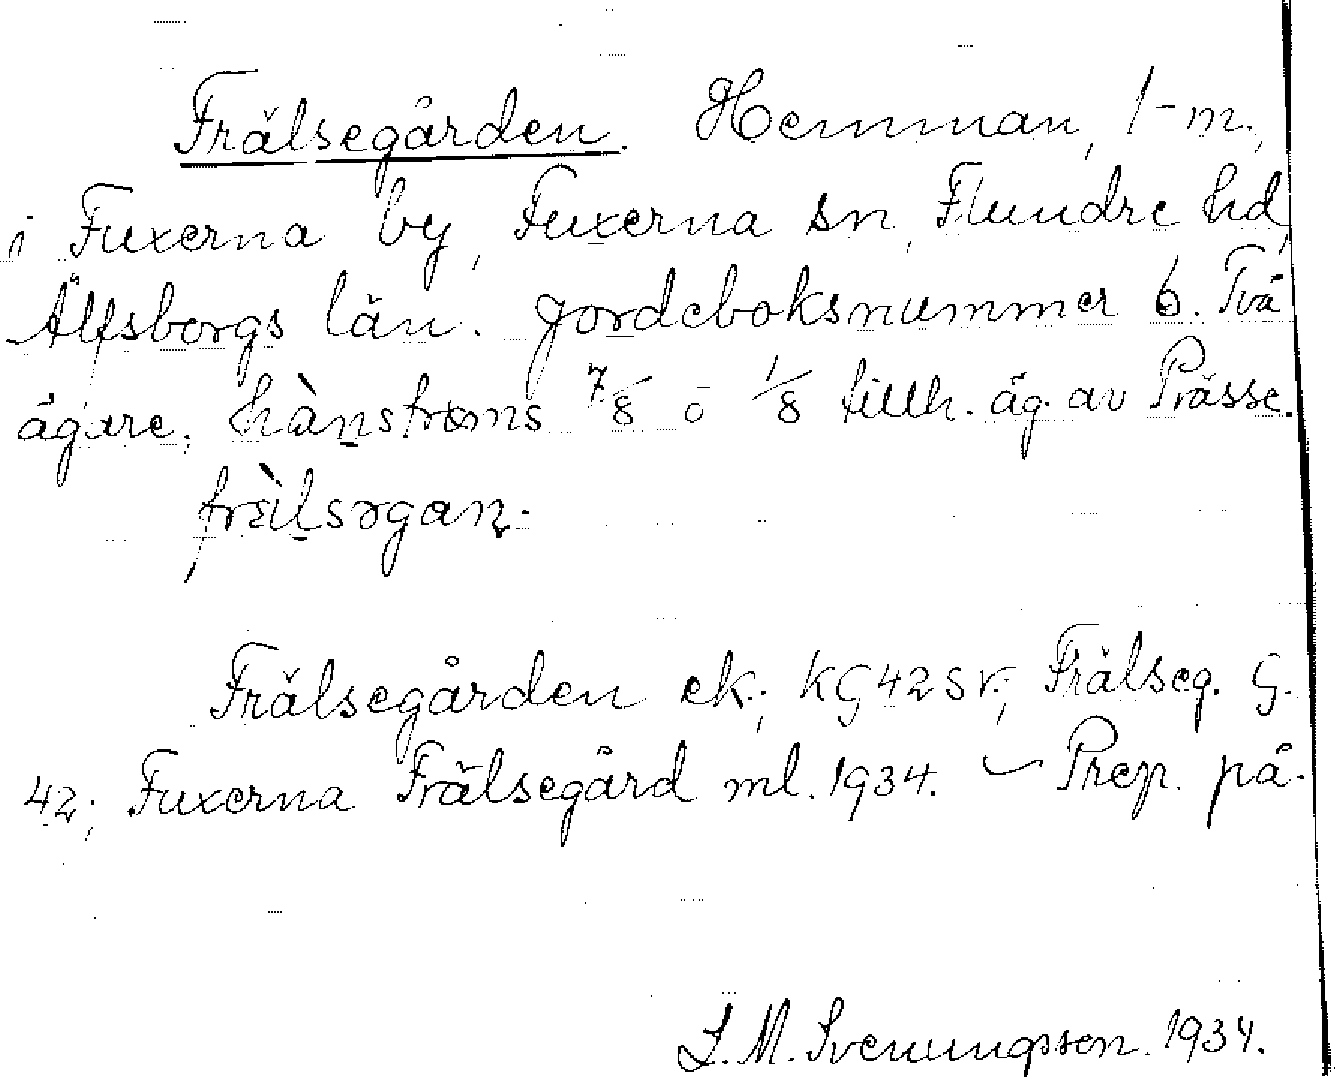 Frälsegården. Hemman, 1-m.,
i Fuxerna by, Fuxerna sn, Flundre hd,
Älfsborgs län. Jordeboksnummer 6. Två
ägare, hànstroms 7/8 o 1/8 tillh. äg. av Prässe.
frälsogan.
Frälsegården ek.; KG42SV; Frälseg. G.
42; Fuxerna Frälsegård ml. 1934. – Prep. på.
L. M. Svenungsson. 1934.